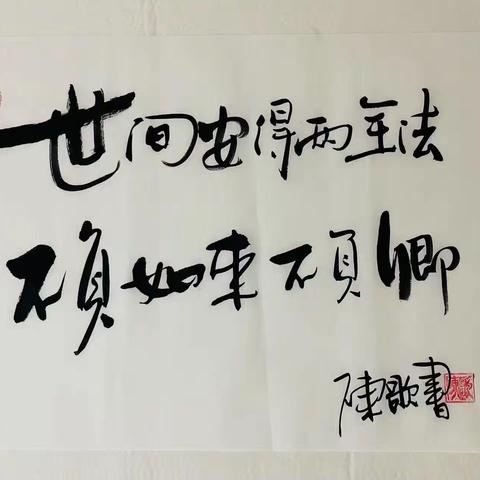 世间安得两全法
不负如来不负卿
陳歌書